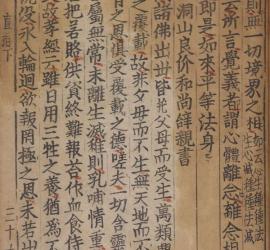 則無一切境界之相如云心生種種法生心滅種種法滅
云所言覺義者謂心體離念離念相
即是如來平等法身
洞山良价和尚辤親書
諸佛出世皆從父母而受生萬類
之覆載故非父母而不生無天地而不
之恩俱受覆載之德嗟夫一切含靈
屬無常未離生滅雖則乳哺情重
把若賂供資終難報荅作血食侍
故孝經云雖日用三牲之養猶為不
沉沒永入輪迴欲報罔極之恩未若出
直指下
三十